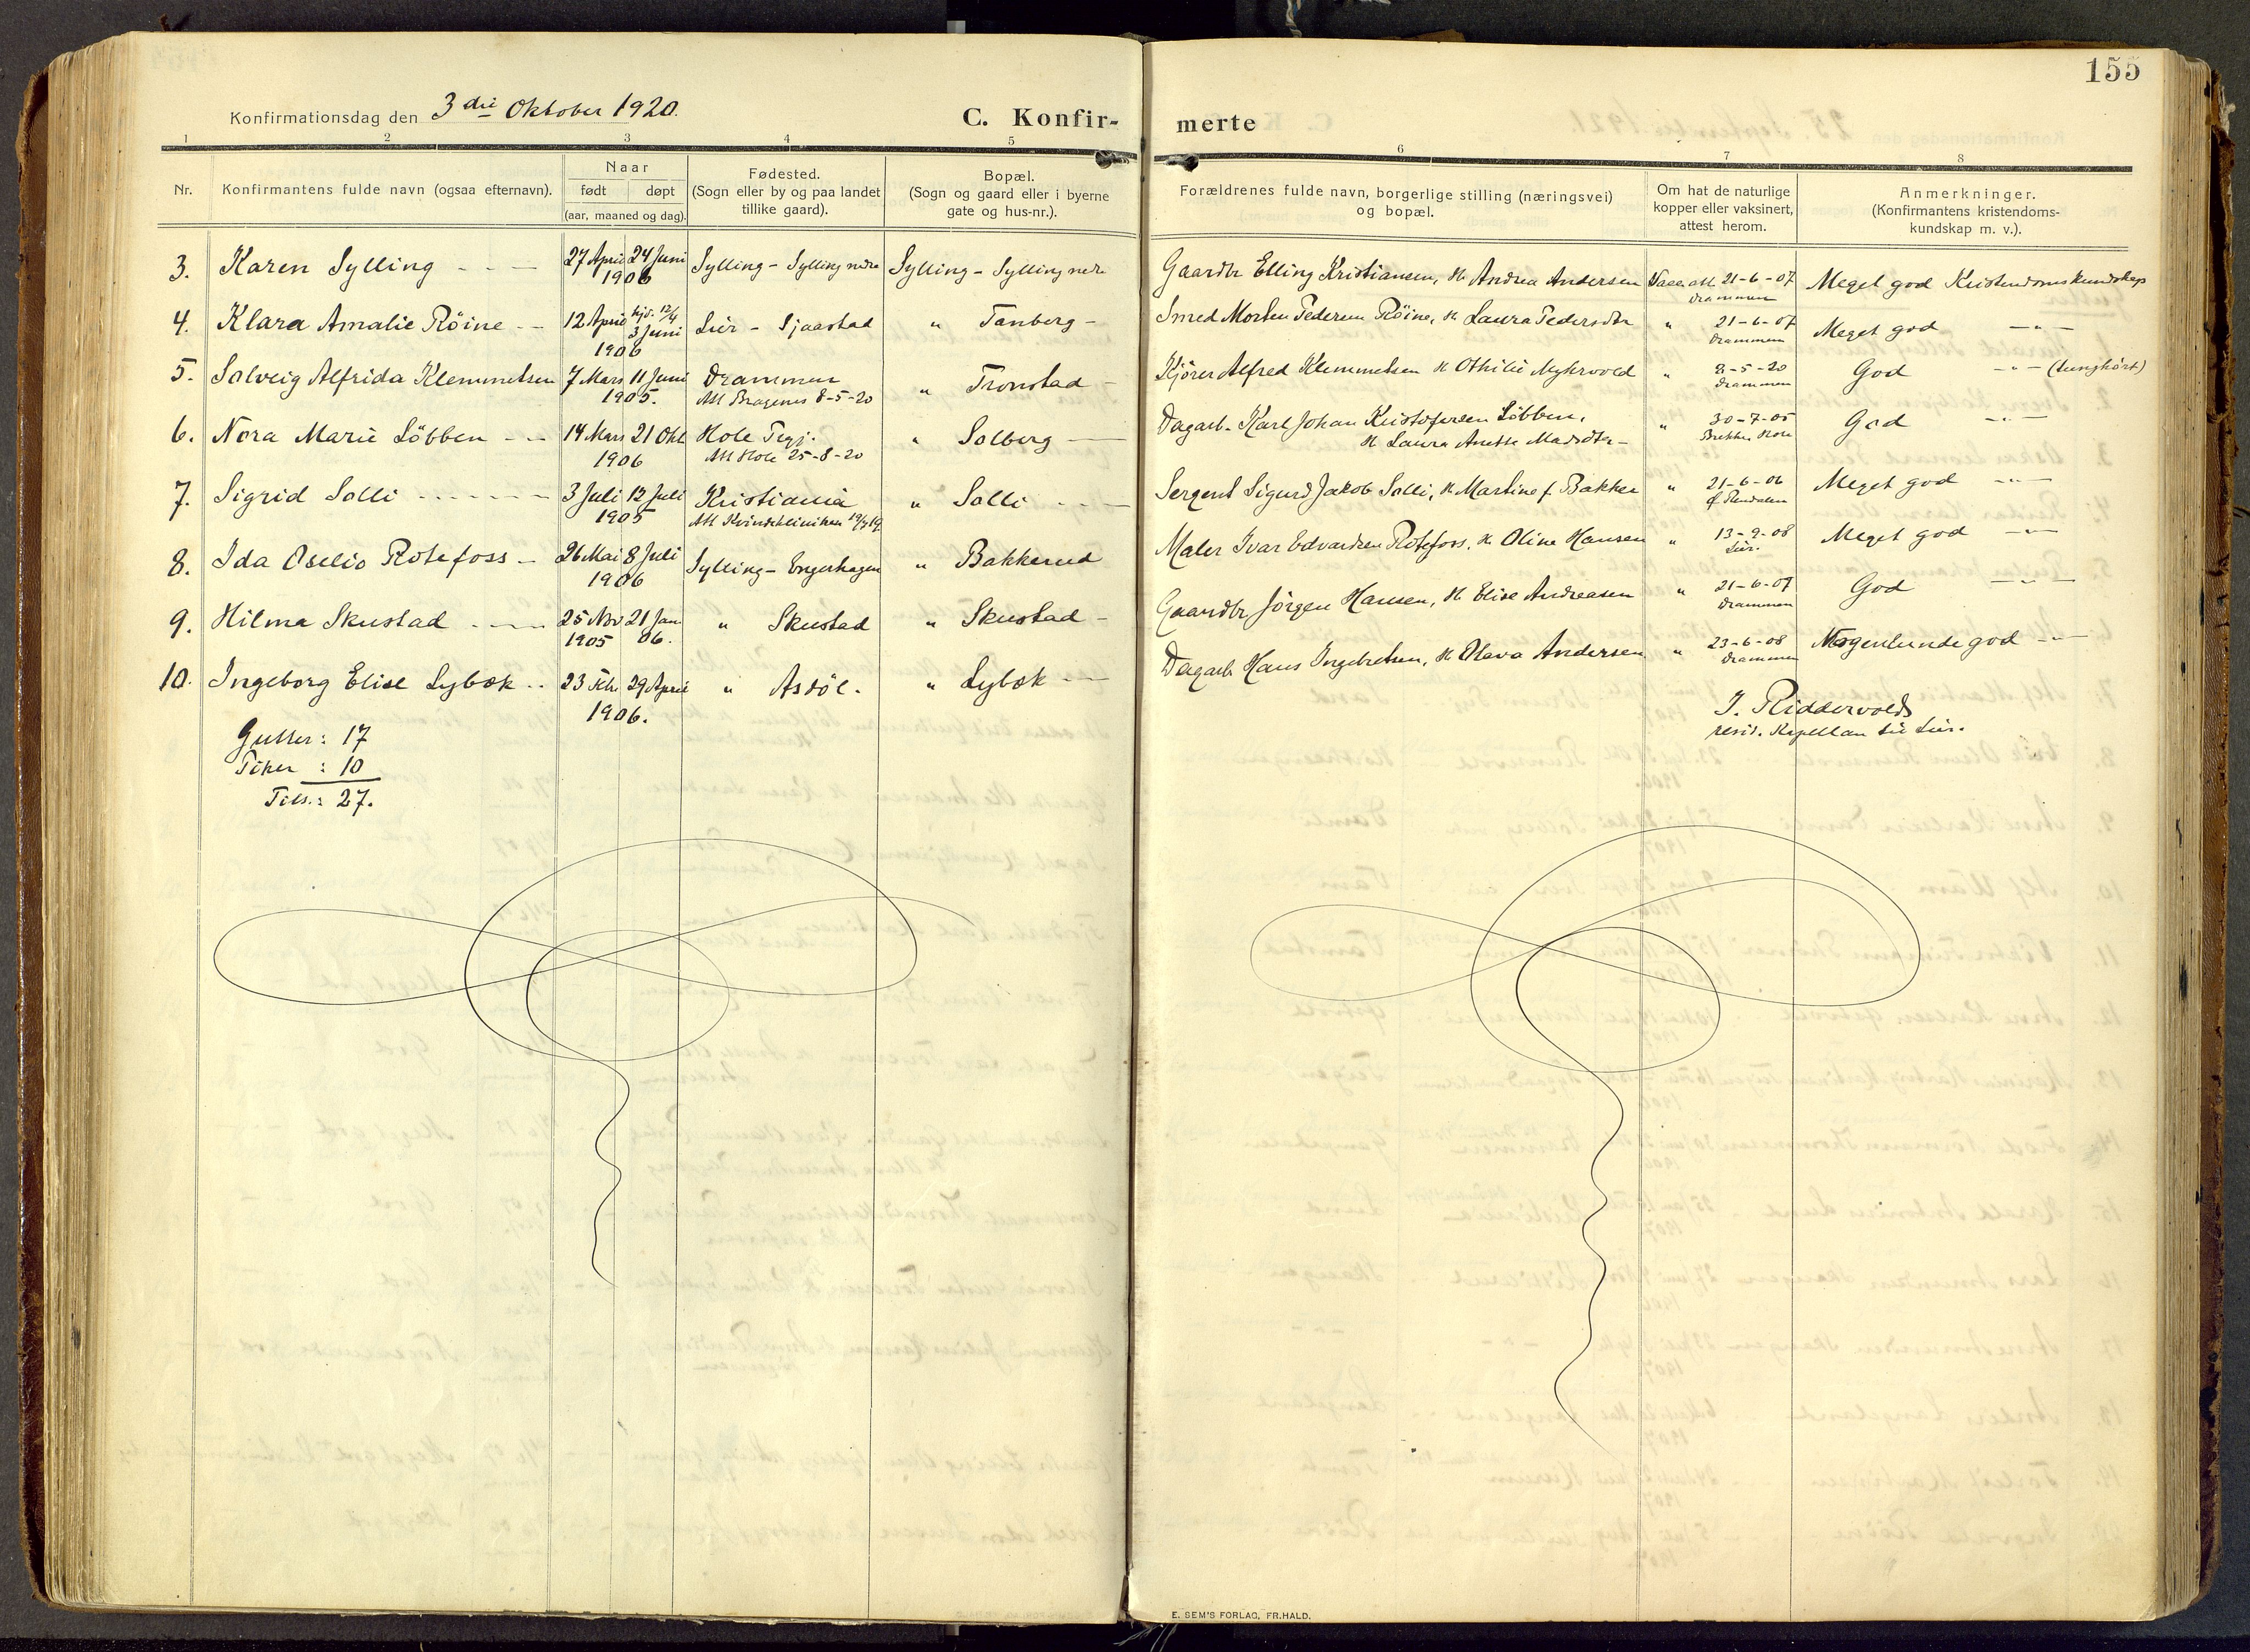 155
Konfirmationsdag den 3die Oktober 1920.
C. Konfirmerte
1 2 3 4 5 6 7 8
Nr.
Konfirmantens fulde navn (ogsaa efternavn).
Naar
født døpt
(aar, maaned og dag).
Fødested.
(Sogn eller by og paa landet
tillike gaard).
Bopæl.
(Sogn og gaard eller i byerne
gate og hus-nr.).
Forældrenes fulde navn, borgerlige stilling (næringsvei)
og bopæl.
Om hat de naturlige
kopper eller vaksinert,
attest herom.
Anmerkninger.
(Konfirmantens kristendoms-
kundskap m. v.).
3. Karen Sylling 27 April 24 Juni Sylling - Sylling nedre Sylling - Sylling nedre Gaardbr Elling Kristiansen, H. Andrea Andersen Vacc. att. 21-6-07 Meget god Kristendomskundskap
1906 Drammen
4. Klara Amalie Röine 12 April hjd. 12/4 3 Juni Lier - Sjaastad " Tanberg - Smed Morten Pedersen Röine, H. Laura Pedersdtr " 21-6-07 Meget god - " -
1906 Drammen
5. Solveig Alfrida Klemmetsen 7 Mars 11 Juni Drammen " Tronstad - Kjörer Alfred Klemmetsen H. Othilie Myhrvold " 8-5-20 God - " - (tunghört)
1905. Att Bragenes 8-5-20 Drammen
6. Nora Marie Löbben 14 Mars 21 Okt Hole " Solberg Dagarb. Karl Johan Kristofersen Löbben, " 30-7-05 God - " -
1906 Att Hole 25-8-20 H. Laura Anette Madsdtr - Hole
7. Sigrid Solli 3 Juli 12 Juli Kristiania " Solli Sergent Sigurd Jakob Solli, H. Martine f. Bakken " 21-6-06 Meget god - " -
1905 Att Kvindeklinikken
8. Ida Oselio Rotefoss 26 Mai 8 Juli Sylling - Engerhagen " Bakkerud Maler Ivar Edvardsen Rotefoss, H. Oline Hansen " 13-9-08 Meget god - " -
1906 Lier.
9. Hilma Skustad 25 Nov 21 Jan " Skustad " Skustad - Gaardbr Jörgen Hansen, H. Elise Andreasen " 21-6-07 God - " -
1905 06. Drammen
10. Ingeborg Elise Lybæk 23 Feb. 29 April " Asdöl. " Lybæk Dagarb Hans Ingebretsen, H. Olava Andersen " 23-6-08 Nogenlunde god - " -
1906. Drammen
Gutter: 17
Piker : 10
Tils.: 27.
J. Riddervolds
resid. Kapellan til Lier.
E. SEM'S FORLAG, FR.HALD.